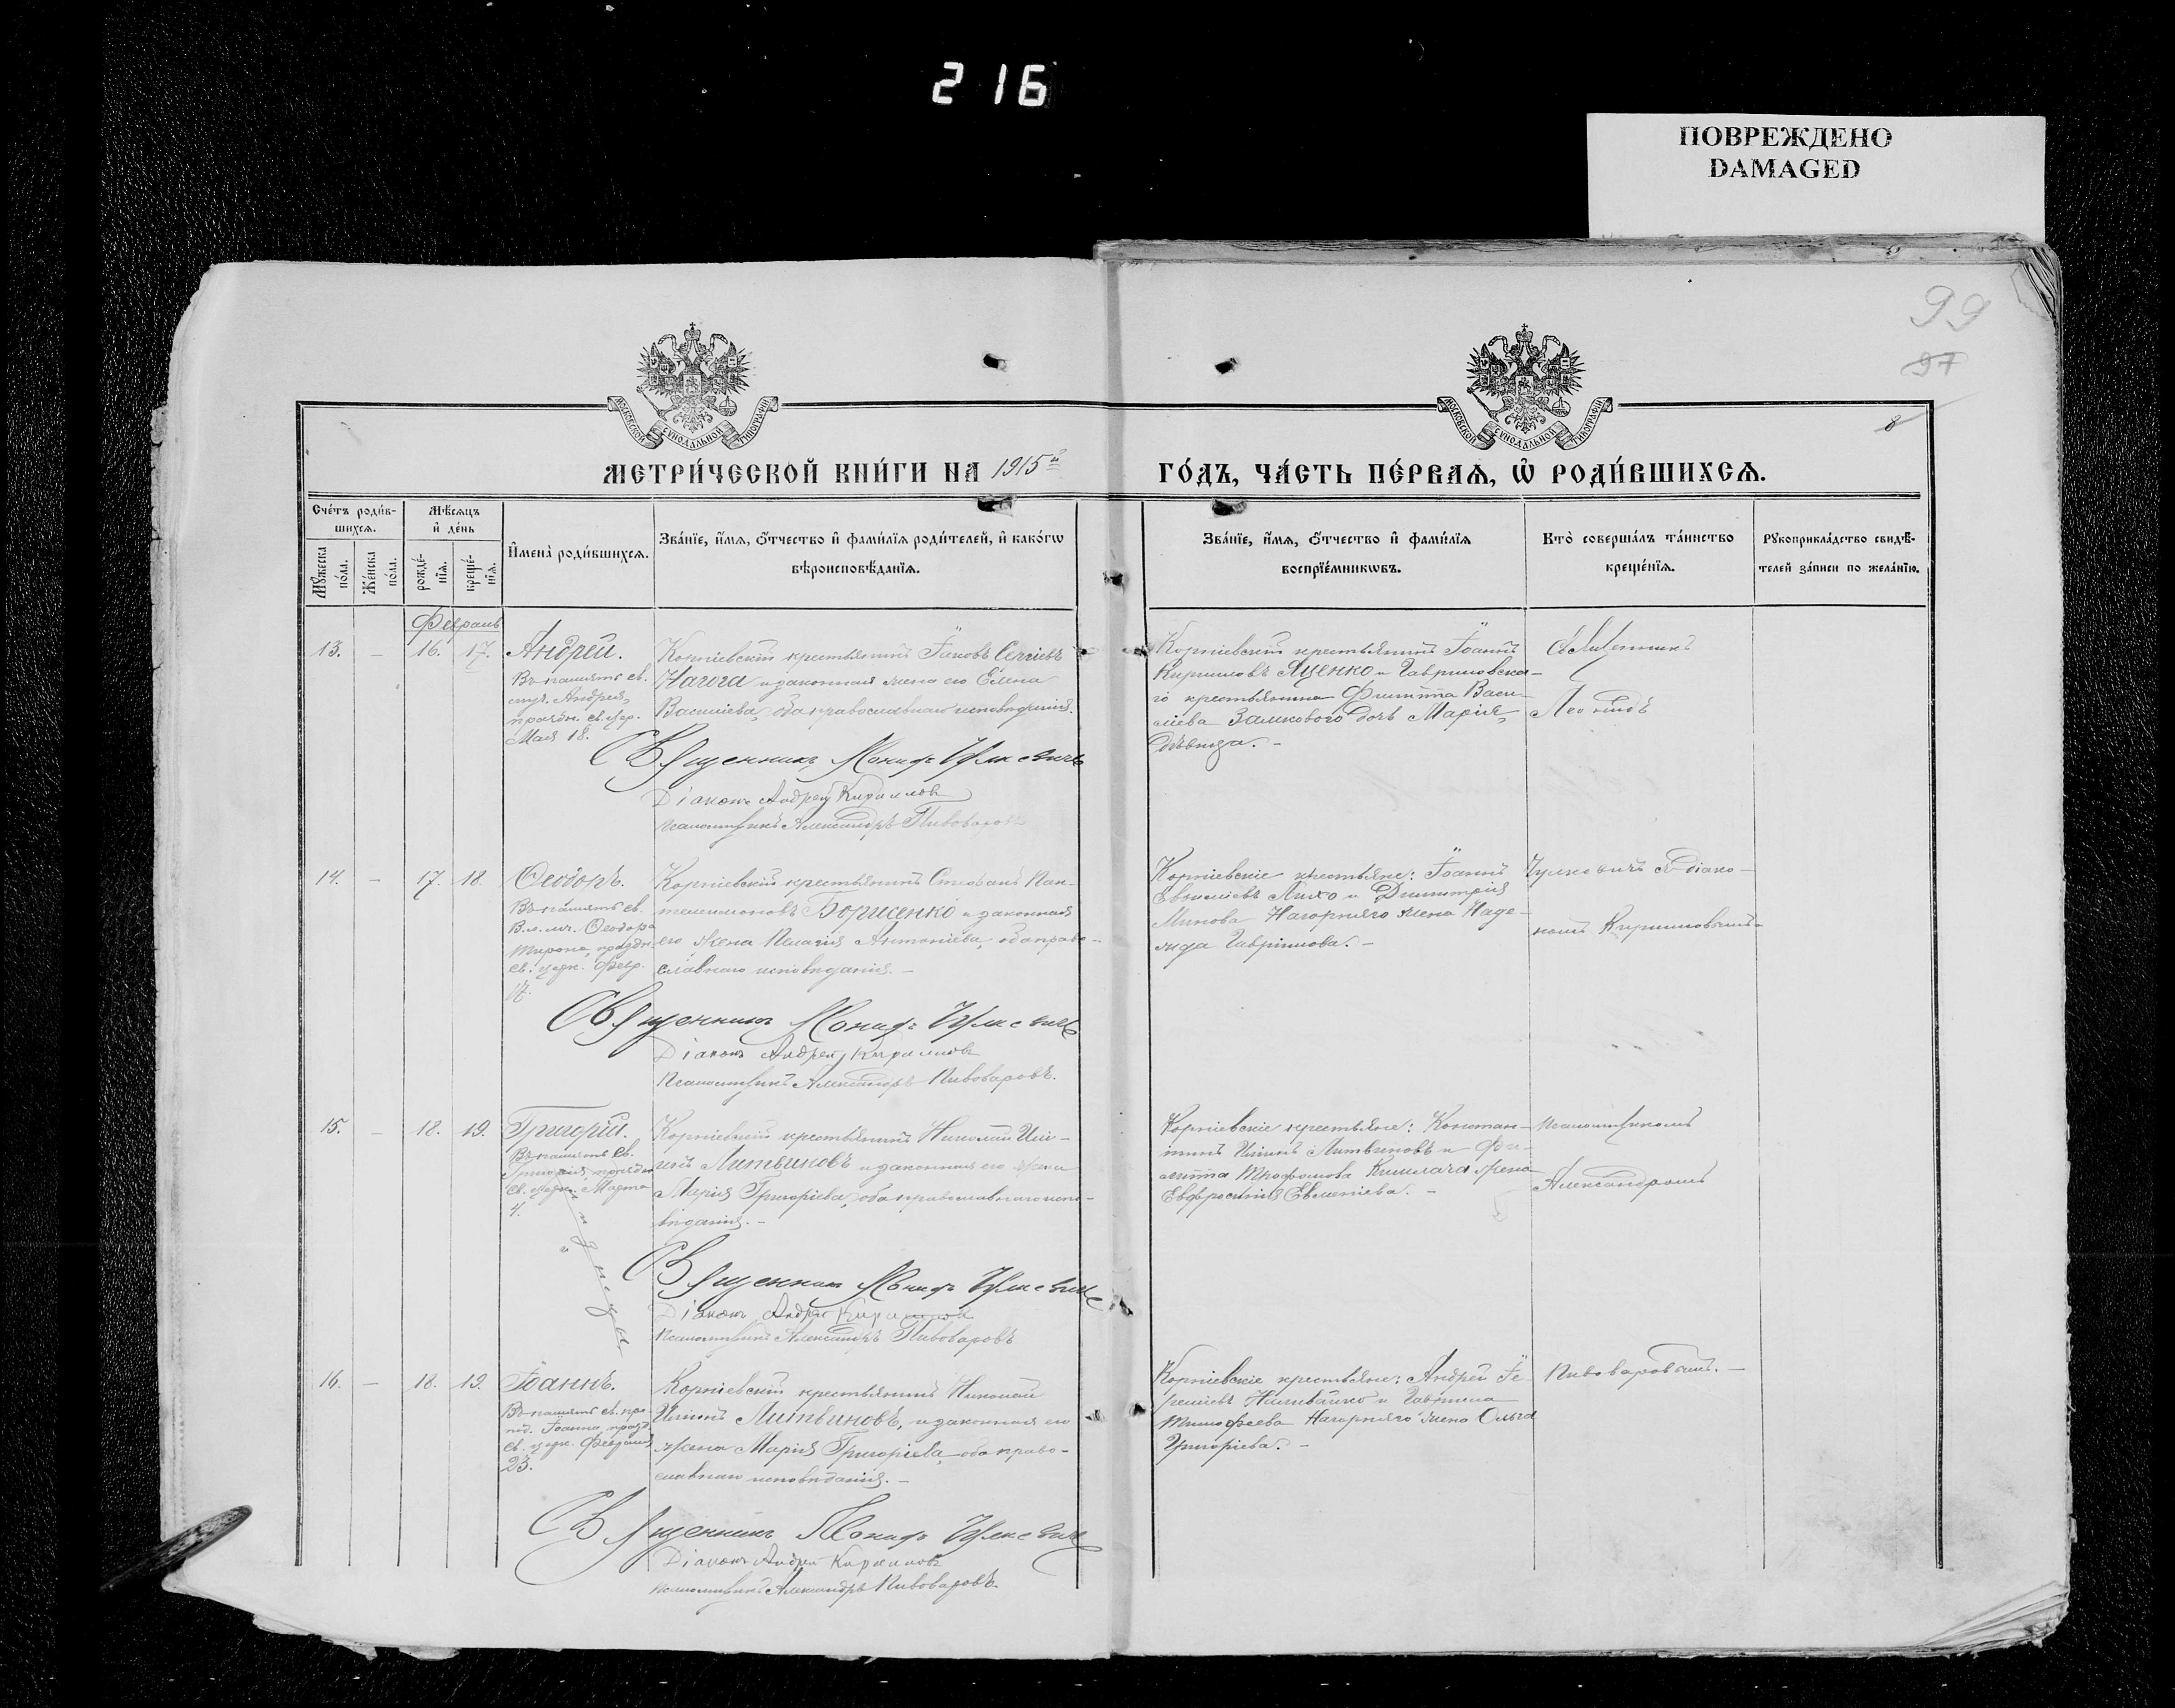 216
ПОВРЕЖДЕНО
DAMAGED
99
97
8
МОСКОВСКОЙ СѴНОДАЛЬНОЙ ТИПОГРАФІИ
МОСКОВСКОЙ СѴНОДАЛЬНОЙ ТИПОГРАФІИ
МЕТРИ́ЧЕСКОЙ КНИ́ГИ НА 1915й
ГО́ДЪ, ЧА́СТЬ ПЕ́РВАѦ, Ѡ҆ РОДИ́ВШИХСѦ.
Сче́тъ роди́в-
шихсѧ.
Мꙋ́жеска
по́ла.
Же́нска
по́ла.
Мѣ́сѧцъ
и҆ де́нь
рожде́-
нїѧ.
креще́-
нїѧ.
И҆мена̀ роди́вшихсѧ.
Зва́нїе, и҆́мѧ, ѻ҆́тчество и҆ фами́лїѧ роди́телей, и҆ како́гѡ
вѣроисповѣ́данїѧ.
Зва́нїе, и҆́мѧ, ѻ҆́тчество и҆ фами́лїѧ
воспрїе́мникѡвъ.
Кто̀ соверша́лъ та́инство
креще́нїѧ.
Рꙋкоприкла́дство свидѣ́-
телей за́писи по жела́нїю.
Февраль
13.
–
16.
17.
Андрей.
Въ память св.
муч. Андрея,
празdн. св. цер.
Мая 18.
Корніевскій крестьянинъ Іаковъ Сергіевъ
Нагога и законная жена его Елена
Василіева, оба православнаго исповѣданія.
Священникъ
Діаконъ Андрей Кирилловъ
Псаломщикъ Александръ Пивоваровъ
Корніевскій крестьянинъ Іоаннъ
Кирилловъ Яценко и Гавриловска-
го крестьянина Филиппа Васи-
ліева Замкового дочь Марія,
дѣвица. –
Священникъ
14.
–
17.
18.
Ѳеодоръ.
Въ память св.
В. м. Ѳеодора
Тирона, праздн.
св. церк. Февр.
17.
Корніевскій крестьянинъ Стефанъ Пан-
телеимоновъ Борисенко и законная
его жена Пелагія Антоніева, оба право-
славнаго исповѣданія. –
Священникъ
Діаконъ Андрей Кирилловъ
Псаломщикъ Александръ Пивоваровъ.
Корніевскіе крестьяне: Іоаннъ
Лихо и Димитрія
Минова Нагорняго жена Наде-
жда Гавріилова. –
съ діако-
номъ Кирилловымъ
15.
–
18.
19.
Григорій.
Въ память св.
Григорія, праздн.
св. церк. Марта
4.
Корніевскій крестьянинъ Николай Илі-
инъ Литвиновъ и законная его жена
Марія Григоріева, оба православнаго испо-
вѣданія. –
Священникъ
Діаконъ Андрей Кирилловъ
Псаломщикъ Александръ Пивоваровъ
Корніевскіе крестьяне: Констан-
тинъ Иліинъ Литвиновъ и Фи-
липпа Трофимова жена
Евфросинія Евменіева. –
псаломщикомъ
Александромъ
16.
–
18.
19.
Іоаннъ.
Въ память св. пре-
под. Іоанна, празд.
св. церк. Февраля
23.
Корніевскій крестьянинъ Николай
Иліинъ Литвиновъ, и законная его
жена Марія Григоріева, оба право-
славнаго исповѣданія. –
Священникъ
Діаконъ Андрей Кирилловъ
Псаломщикъ Александръ Пивоваровъ.
Корніевскіе крестьяне: Андрей Іе-
реміевъ Наливайко и Гавріила
Тимофеева Нагорняго жена Ольга
Григоріева. –
Пивоваровымъ. –